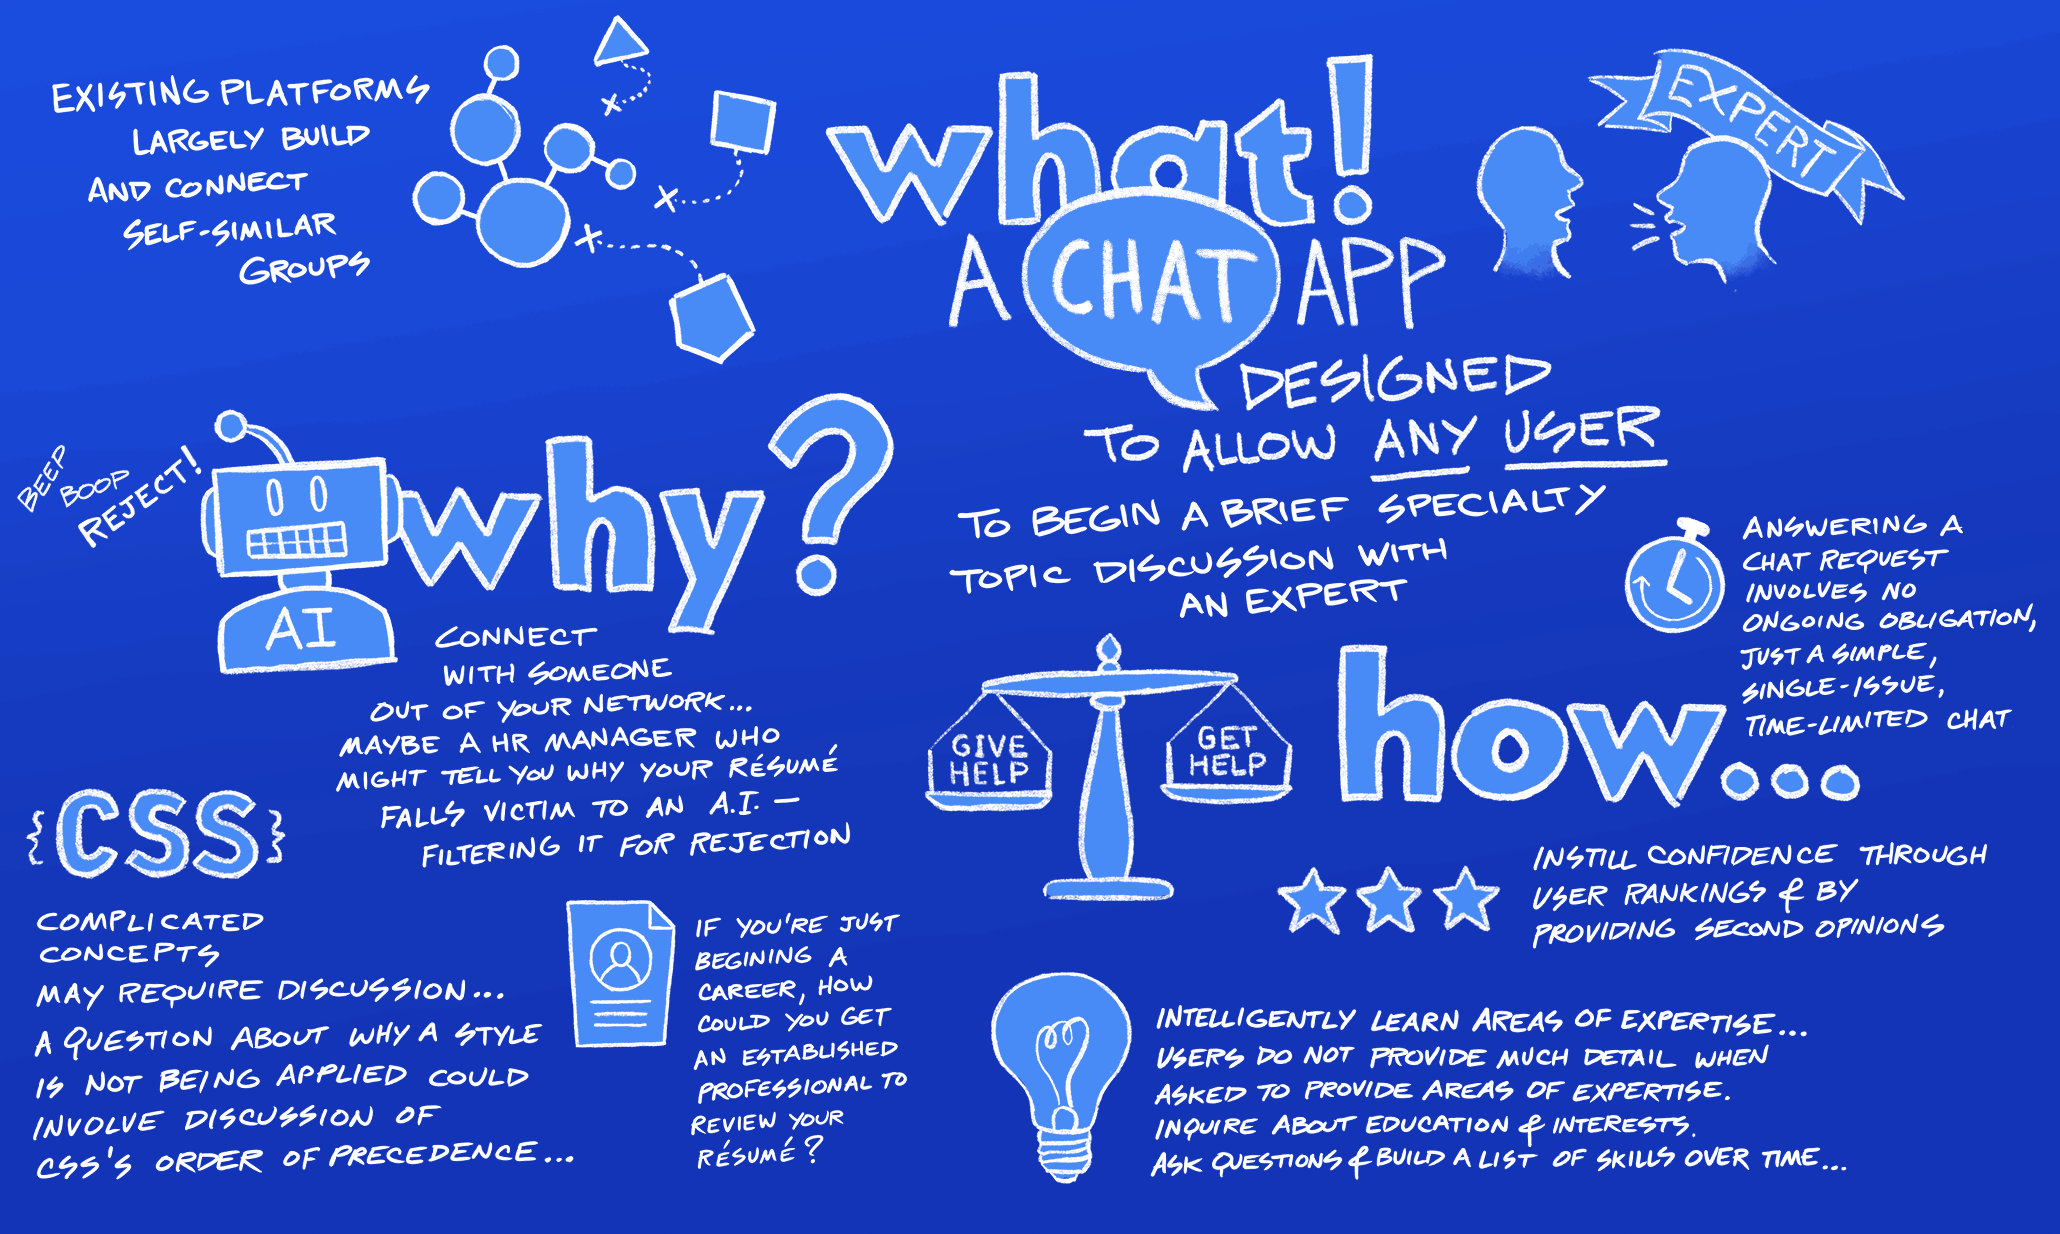 EXISTING PLATFORMS
LARGELY BUILD
AND CONNECT
SELF-SIMILAR
GROUPS
what!
A CHAT APP
DESIGNED
TO ALLOW ANY USER
TO BEGIN A BRIEF SPECIALTY
TOPIC DISCUSSION WITH
AN EXPERT
EXPERT
BEEP
BOOP
REJECT!
AI
why?
CONNECT
WITH SOMEONE
OUT OF YOUR NETWORK...
MAYBE A HR MANAGER WHO
MIGHT TELL YOU WHY YOUR RÉSUMÉ
FALLS VICTIM TO AN A.I. —
FILTERING IT FOR REJECTION
{CSS}
COMPLICATED
CONCEPTS
MAY REQUIRE DISCUSSION...
A QUESTION ABOUT WHY A STYLE
IS NOT BEING APPLIED COULD
INVOLVE DISCUSSION OF
CSS'S ORDER OF PRECEDENCE...
IF YOU'RE JUST
BEGINING A
CAREER, HOW
COULD YOU GET
AN ESTABLISHED
PROFESSIONAL TO
REVIEW YOUR
RÉSUMÉ?
GIVE
HELP
GET
HELP
how...
ANSWERING A
CHAT REQUEST
INVOLVES NO
ONGOING OBLIGATION,
JUST A SIMPLE,
SINGLE-ISSUE,
TIME-LIMITED CHAT
INSTILL CONFIDENCE THROUGH
USER RANKINGS & BY
PROVIDING SECOND OPINIONS
INTELLIGENTLY LEARN AREAS OF EXPERTISE...
USERS DO NOT PROVIDE MUCH DETAIL WHEN
ASKED TO PROVIDE AREAS OF EXPERTISE.
INQUIRE ABOUT EDUCATION & INTERESTS.
ASK QUESTIONS & BUILD A LIST OF SKILLS OVER TIME...